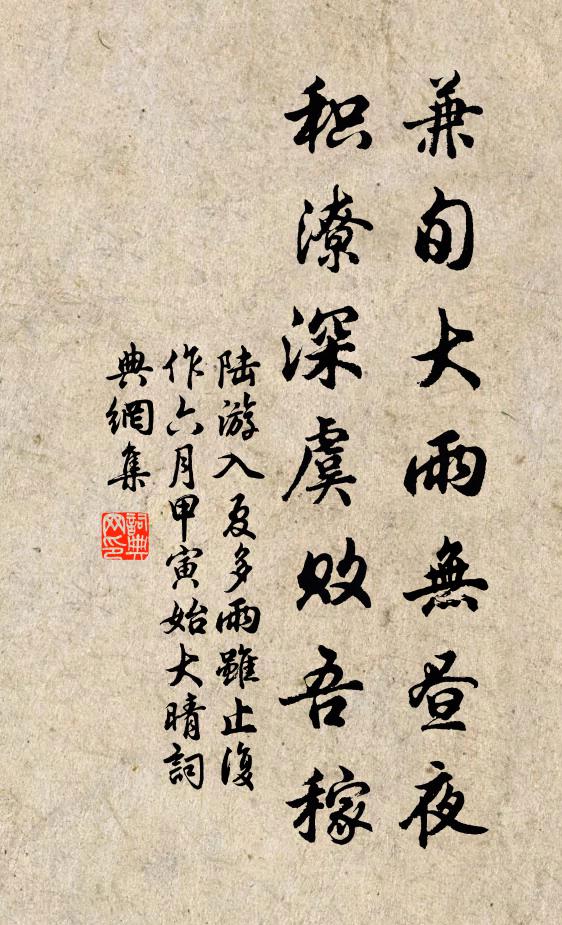 兼旬大雨無昼夜
积潦深虞败吾稼
陆游入夏多雨雖止復
作六月甲寅始大晴詞
典網集
詞典
网印